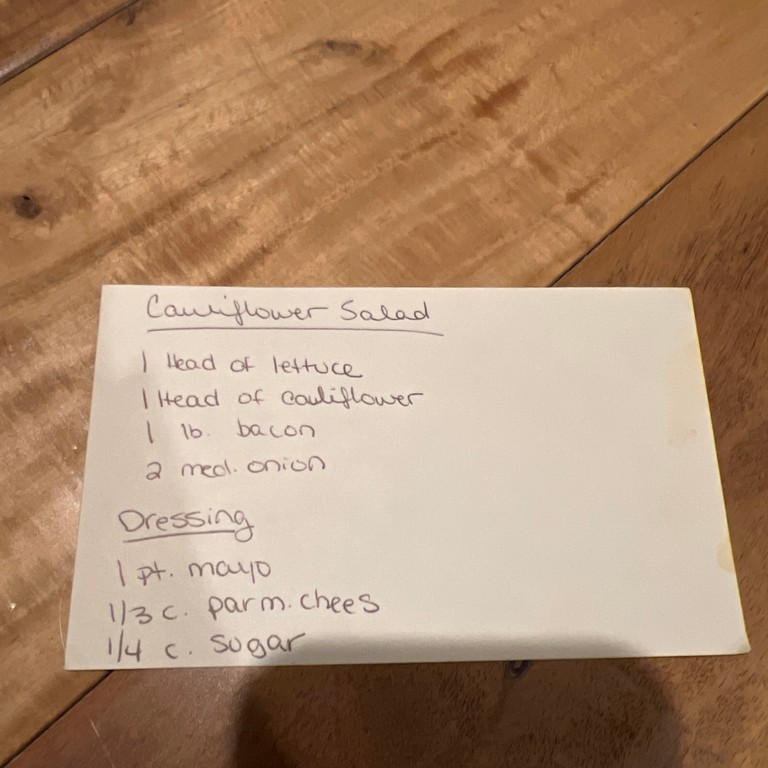 Cauliflower Salad
1 Head of lettuce
1 Head of cauliflower
1 lb. bacon
2 med. onion
Dressing
1 pt. mayo
1/3 c. parm. chees
1/4 c. sugar